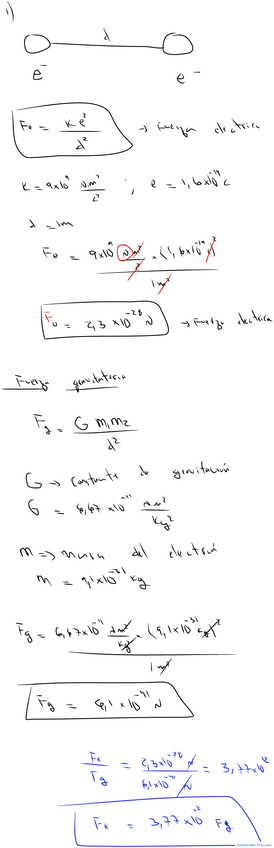 1)
d
e⁻ e⁻
Fe = K e² / d² → Fuerza electrica
K = 9x10⁹ N.m²/c² ; e = 1,6x10⁻¹⁹ c
d = 1m
Fe = 9x10⁹ N m²/c² x (1,6x10⁻¹⁹ c)² / 1m²
Fe = 2,3 x10⁻²⁸ N → Fuerza electrica
Fuerza gravitatoria
Fg = G m₁m₂ / d²
G → constante de gravitación
G = 6,67 x10⁻¹¹ N m²/kg²
m => masa del electrón
m = 9,1x10⁻³¹ kg
Fg = 6,67x10⁻¹¹ N m²/kg² x (9,1x10⁻³¹ kg)² / 1m²
Fg = x10 N
Fe/Fg = 2,3x10⁻²⁸ N / N = 3,77x10
Fe = 3,77x10 Fg